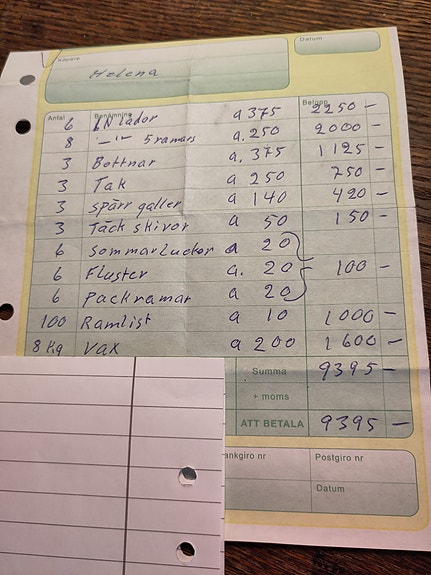 Köpare
Datum
Helena
Antal Benämning Belopp
6 LN lådor a 375 2250 -
8 -"- 5 ramars a. 250 2000 -
3 Bottnar a. 375 1125 -
3 Tak a 250 750 -
3 spärr galler a 140 420 -
3 Täck skivor a 50 150 -
6 Sommarluckor a 20
6 Fluster a. 20 100 -
6 packramar a 20
100 Ramlist a 10 1000 -
8 kg vax a 200 1600 -
Summa 9395 -
+ moms
ATT BETALA 9395 -
ankgiro nr Postgiro nr
Datum